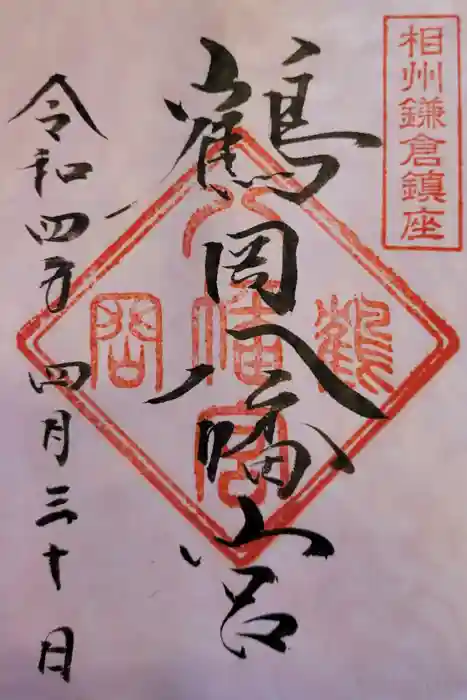 相州鎌倉鎮座
鶴岡八幡宮
令和四年 四月三十日
鶴岡八幡宮